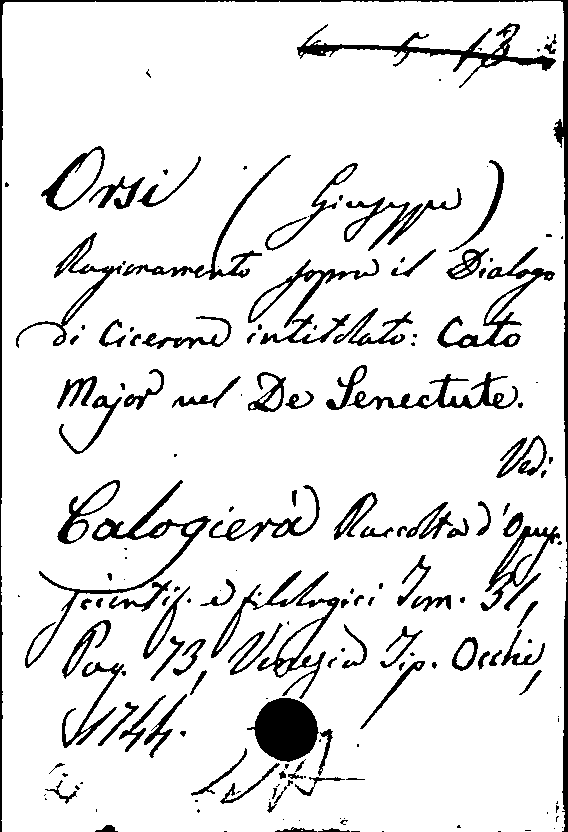 5 13
Orsi (Giuseppe)
Ragionamento sopra il Dialogo
di Cicerone intitolato: Cato
Major vel De Senectute.
Vedi
Calogierà Raccolta d'Opusc.
scientif. e filologici Tom. 31,
Pag. 73, Venezia Tip. Occhi,
1744.